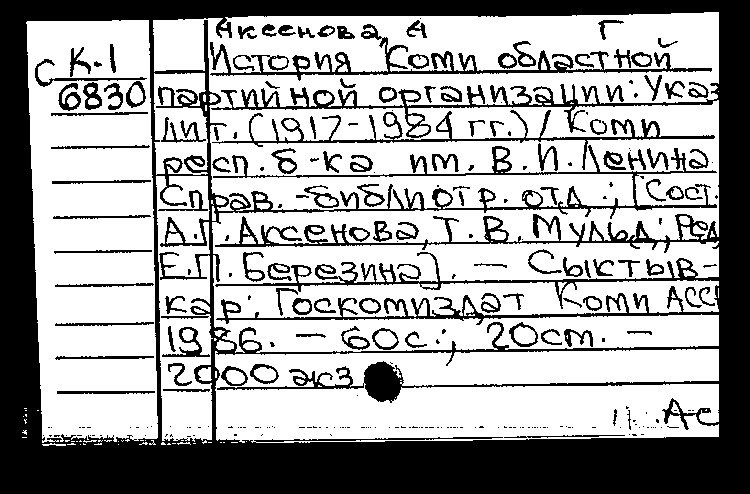 Аксенова, А Г
С К-1
6830
История Коми областной
партийной организации: Указ
лит. (1917-1984 гг.) / Коми
респ. б-ка им. В.И.Ленина
Справ.-библиотр. отд.; [Сост.
А.Г.Аксенова, Т.В.Мульд; Ред
Е.П.Березина]. — Сыктыв-
кар: Госкомиздат Коми АССР
1986. — 60с.; 20см. —
2000 экз